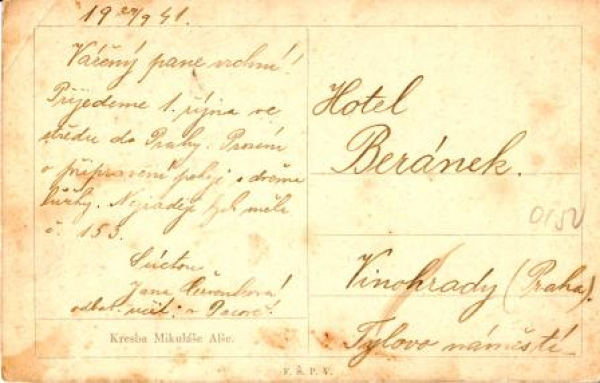 19 29/9 41.
Vážený pane vrchní!
Přijedeme 1. října ve
středu do Prahy. Prosím
o připravení pokoje o dvěma
lůžky. Nejraději bych měla
č. 153.
S úctou
Jana Červenková
odbor. učit. v Pacově.
Kresba Mikuláše Alše.
Hotel
Beránek.
Vinohrady (Praha).
Tylovo náměstí
F. Š. P. V.